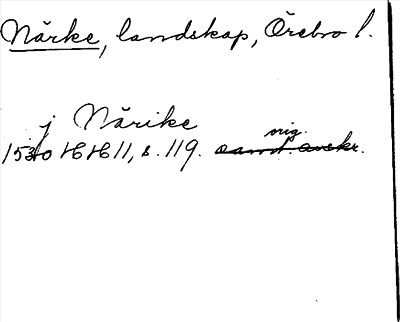 Närke, landskap, Örebro l.
j Närike
orig.
1530 HH 11, s. 119. samt. avskr.